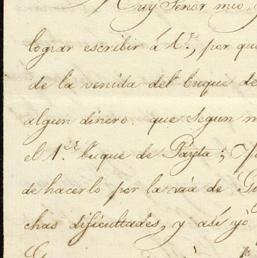 Muy Señor mio,
lograr escribir á V., por que
de la venida del buque de
algun dinero, que segun m
el 1.er buque de Payta; y
de hacerlo por la via de G
chas dificultades, y asi yo